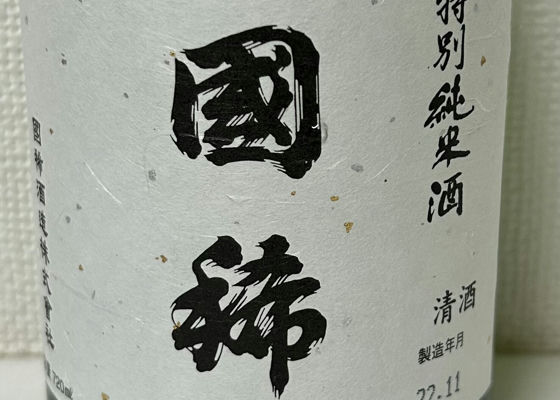 特別純米酒
國稀
清酒
製造年月
22.11
國稀酒造株式會社
720ml